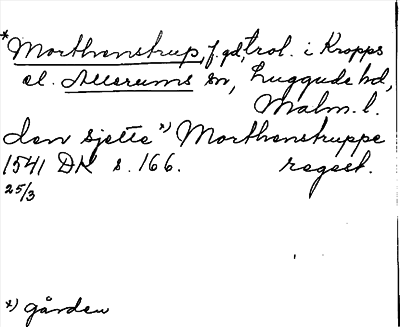 *Morthenstrup, f. gd, trol. i Kropps
el. Allerums sn, Luggude hd,
Malm. l.
den sjette *) Morthenstruppe
1541 DK s. 166. regest.
25/3
*) gården